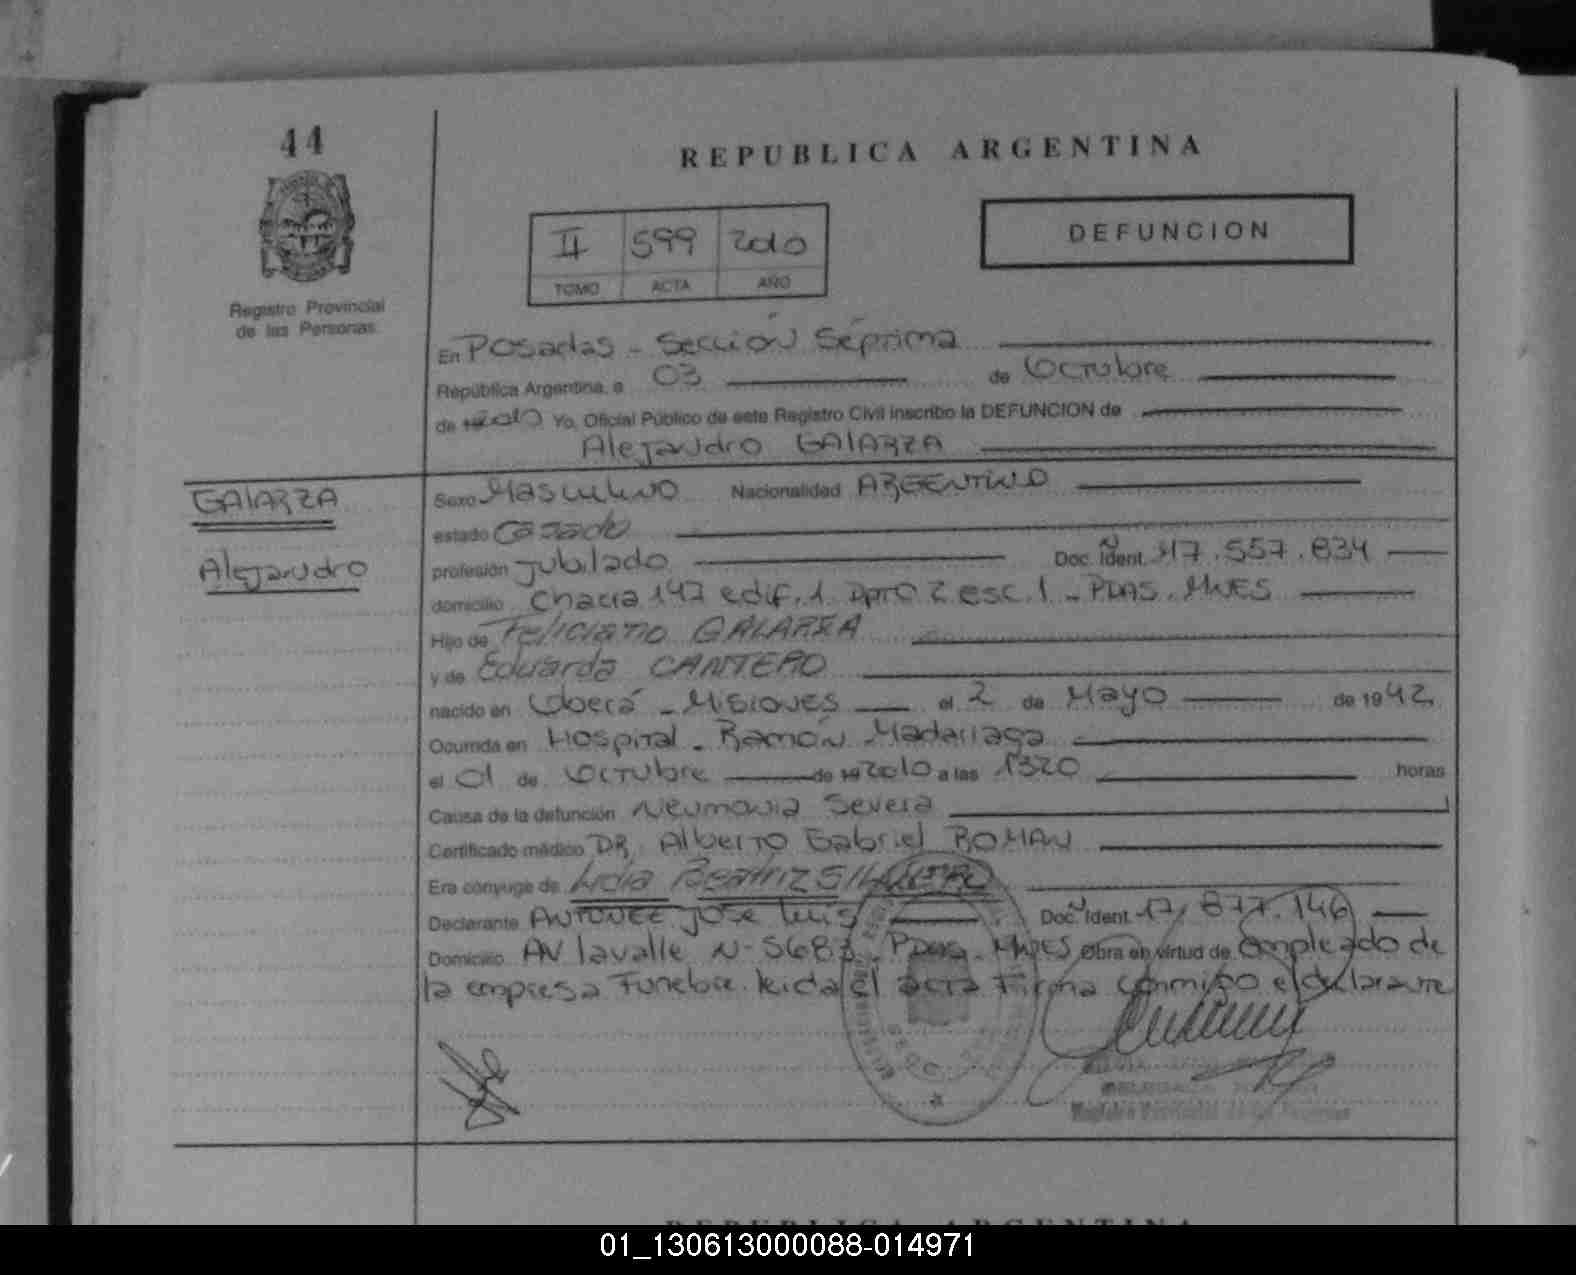 44
REPUBLICA ARGENTINA
Registro Provincial
de las Personas
II 599 2010
TOMO ACTA AÑO
DEFUNCION
En Posadas - Sección Séptima
República Argentina, a 03 de Octubre
de 2010 Yo, Oficial Público de este Registro Civil inscribo la DEFUNCION de
Alejandro GALARZA
GALARZA
Alejandro
Sexo Masculino Nacionalidad ARGENTINO
estado Casado
profesión Jubilado Doc. Ident. N 17.557.834
domicilio Chacra 147 edif. 1 Dpto 2 esc. 1 - PDAS. MNES
Hijo de Feliciano GALARZA
y de Eduarda CANTERO
nacido en Oberá - Misiones el 2 de Mayo de 1942
Ocurrida en Hospital - Ramón - Madariaga
el 01 de Octubre de 19 2010 a las 1320 horas
Causa de la defunción Neumonia Severa
Certificado médico DR. Alberto Gabriel ROMAN
Era cónyuge de Lidia Beatriz
Declarante ANTUNEZ José Luis Doc. Ident. N 17.877.146
Domicilio AV lavalle N-5683 - PDAS - MNES Obra en virtud de empleado de
la empresa Funebre. leida el acta Firma conmigo el declarante
Registro Provincial de las Personas
REPUBLICA ARGENTINA
01_130613000088-014971